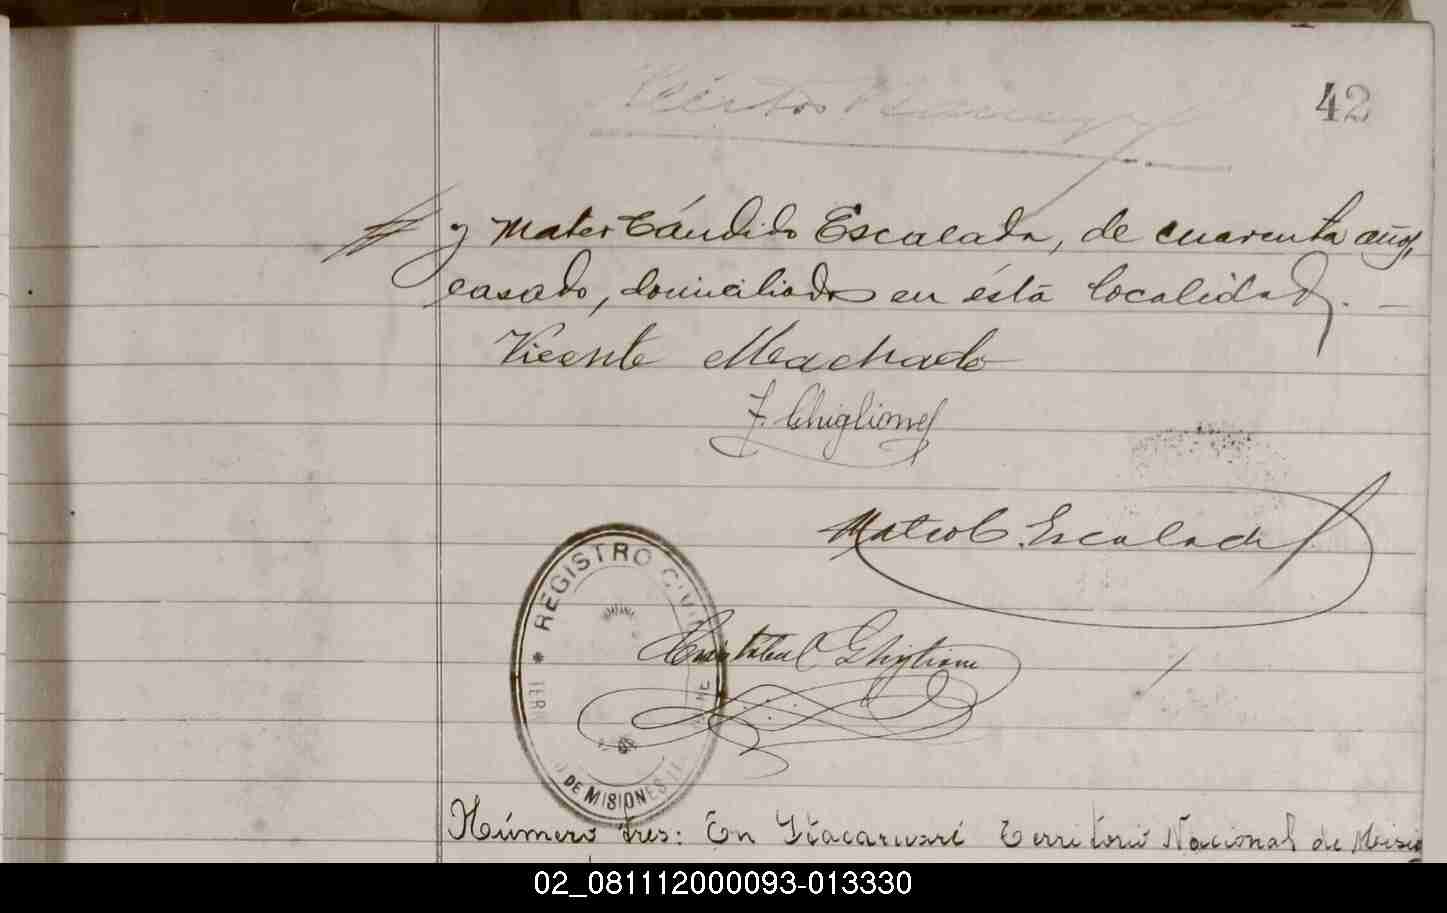 42
y Mateo Cándido Escalada, de cuarenta años,
casado, domiciliado en ésta localidad. -
Vicente Machado
F. Ghiglione
Mateo C. Escalada
REGISTRO CIVIL
Ghiglione
DE MISIONES
Número tres: En Itacaruaré Territorio Nacional de Misio
02_081112000093-013330